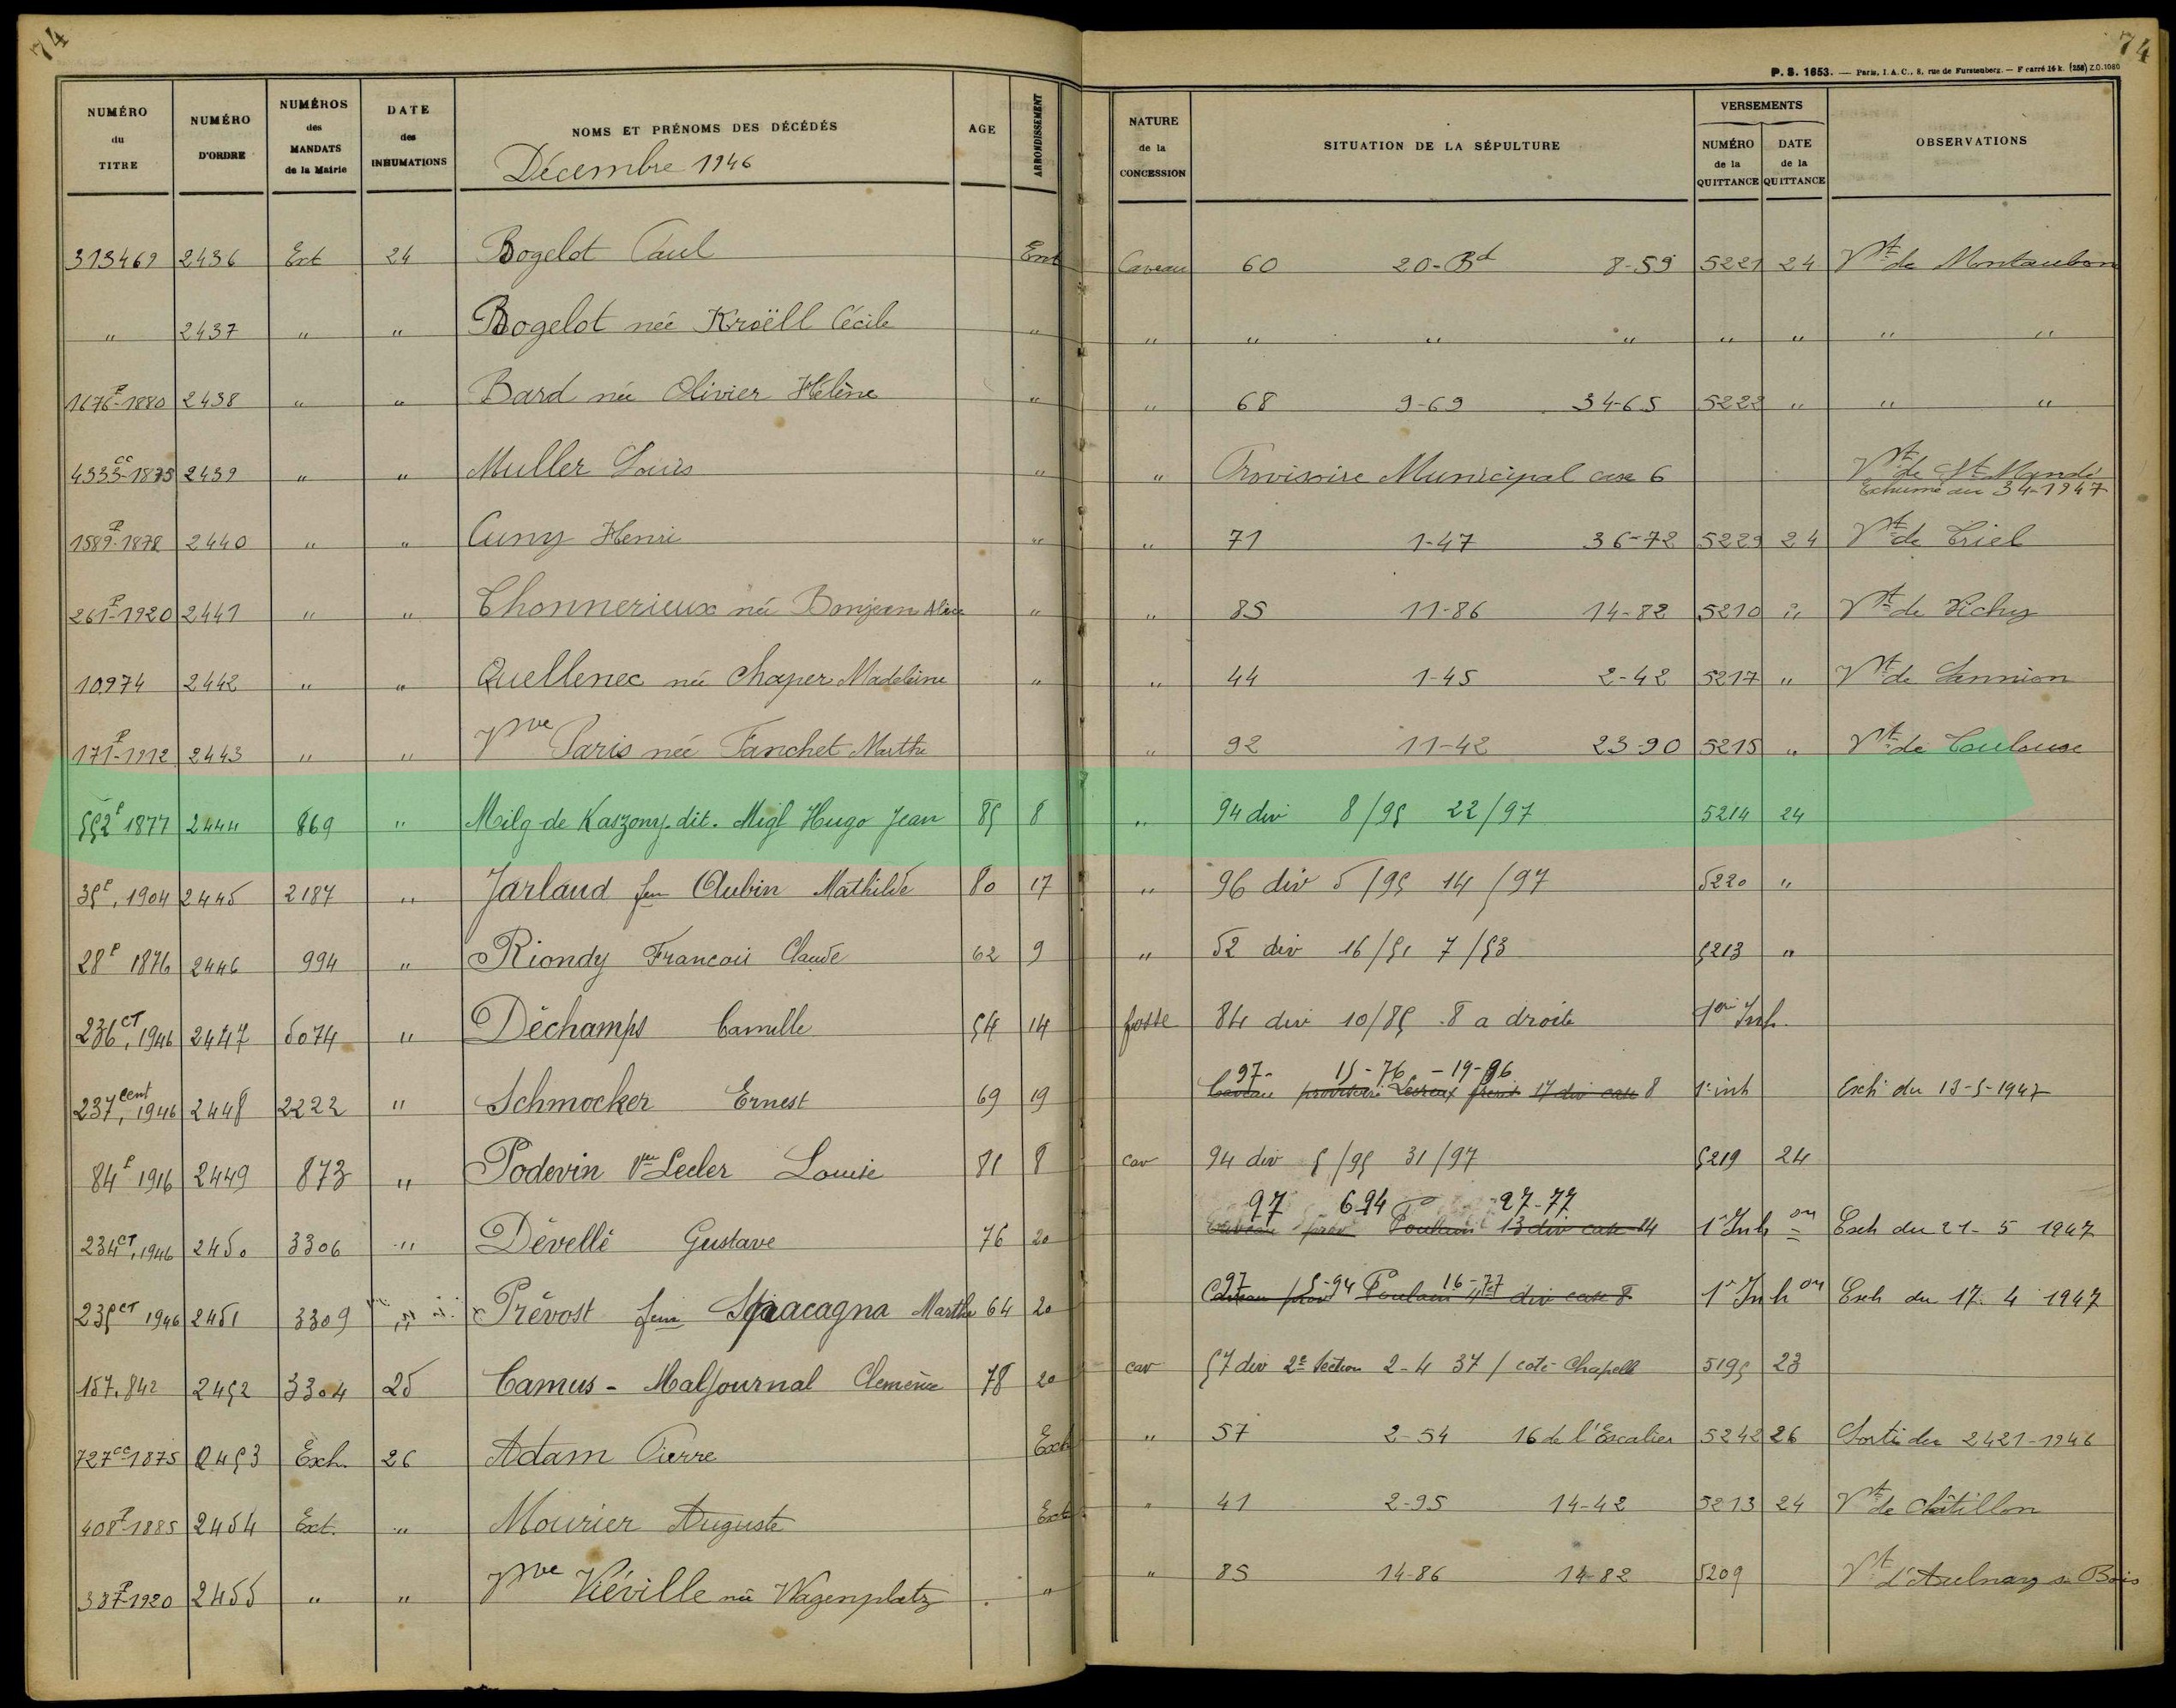 74
74
P. S. 1653. — Paris, I. A. C., 8, rue de Furstenberg. — F carré 14 k. (258) Z.O. 1080
NUMÉRO du TITRE | NUMÉRO D'ORDRE | NUMÉROS des MANDATS de la Mairie | DATE des INHUMATIONS | NOMS ET PRÉNOMS DES DÉCÉDÉS | AGE | ARRONDISSEMENT | NATURE de la CONCESSION | SITUATION DE LA SÉPULTURE | VERSEMENTS NUMÉRO de la QUITTANCE | DATE de la QUITTANCE | OBSERVATIONS
Décembre 1946
313469 2436 Ext 24 Bogelot Paul Ext Caveau 60 20-Bd 8-59 5221 24 Vt de Montauban
" 2437 " " Bogelot née Kroëll Cécile " " " " " " " " "
1676P-1880 2438 " " Bard née Olivier Hélène " " 68 9-69 34-65 5222 " " "
4333cc-1875 2439 " " Muller Louis " " Provisoire Municipal case 6 Vt de St Mandé
Exhumé du 3 4-1947
1589P-1878 2440 " " Cuny Henri " " 71 1-47 36-72 5229 24 Vt de Triel
261P-1920 2441 " " Thonnerieux née Bonjean Alice " " 85 11-86 14-82 5210 " Vt de Vichy
10974 2442 " " Quellenec née Chaper Madeleine " " 44 1-45 2-42 5217 " Vt de Lannion
171P-1912 2443 " " Vve Paris née Fanchet Marthe " 92 11-42 23-90 5215 " Vt de Toulouse
552P 1877 2444 869 " Milg de Kaszony. dit. Migl Hugo Jean 85 8 " 94 div 8/95 22/97 5214 24
35P. 1904 2445 2187 " Jarlaud fem Aubin Mathilde 80 17 " 96 div 5/95 14/97 5220 "
28P 1876 2446 994 " Riondy Francois Claude 62 9 " 52 div 16/51 7/53 5213 "
236CT. 1946 2447 5074 " Déchamps Camille 54 14 fosse 84 div 10/85 8 a droite 1ere Inh.
97- 15-76 -19-96
237cent. 1946 2448 2222 " Schmocker Ernest 69 19 Caveau provisoire Lesreux 17 div case 8 1e inh Exh du 13-5-1947
84P 1916 2449 873 " Podevin Vve Lecler Louise 81 8 cav 94 div 5/95 31/97 5219 24
97 6-94 27-77
234CT. 1946 2450 3306 " Dévellé Gustave 76 20 Caveau prov Poulain 13 div case 14 1e Inhon Exh du 21-5 1947
97 5-94 16-77
235CT 1946 2451 3309 " Prévost fem Spacagna Marthe 64 20 Caveau prov Poulain div case 8 1e Inhon Exh du 17. 4 1947
157.842 2452 3304 25 Camus - Maljournal Clemence 78 20 cav 57 div 2e Section 2-4 37/ coté Chapelle 5195 23
727cc-1875 2453 Exh. 26 Adam Pierre Exh " 57 2-54 16 de l'Escalier 5242 26 Sorti du 2421-1946
408P-1885 2454 Ext. " Mourier Auguste Ext " 41 2-95 14-42 5213 24 Vt de Châtillon
337P-1920 2455 " " Vve Viéville née Wagenplatz " " 85 14-86 14-82 5209 Vt d'Aulnay s. Bois